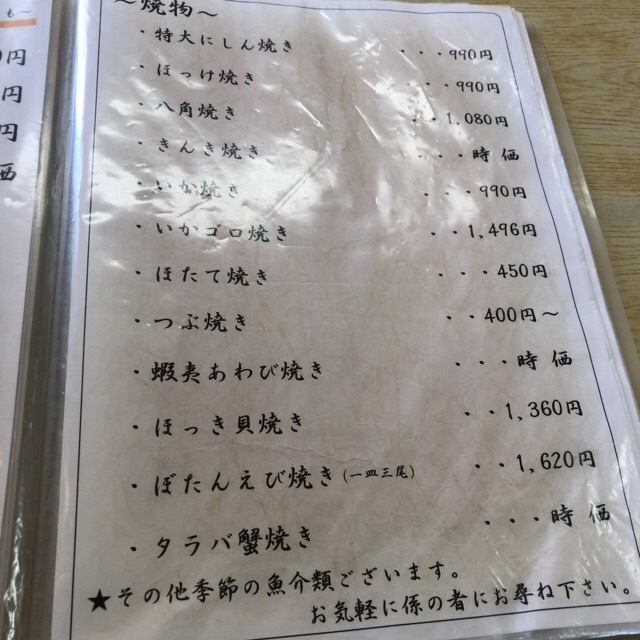 も～
0円
円
円
価
～焼物～
・特大にしん焼き ・・・990円
・ほっけ焼き ・・・990円
・八角焼き ・・1,080円
・きんき焼き ・・・時価
・いか焼き ・・・990円
・いかゴロ焼き ・・1,496円
・ほたて焼き ・・・450円
・つぶ焼き ・・400円～
・蝦夷あわび焼き ・・・時価
・ほっき貝焼き ・・1,360円
・ぼたんえび焼き(一皿三尾) ・・1,620円
・タラバ蟹焼き ・・・時価
★その他季節の魚介類ございます。
お気軽に係の者にお尋ね下さい。